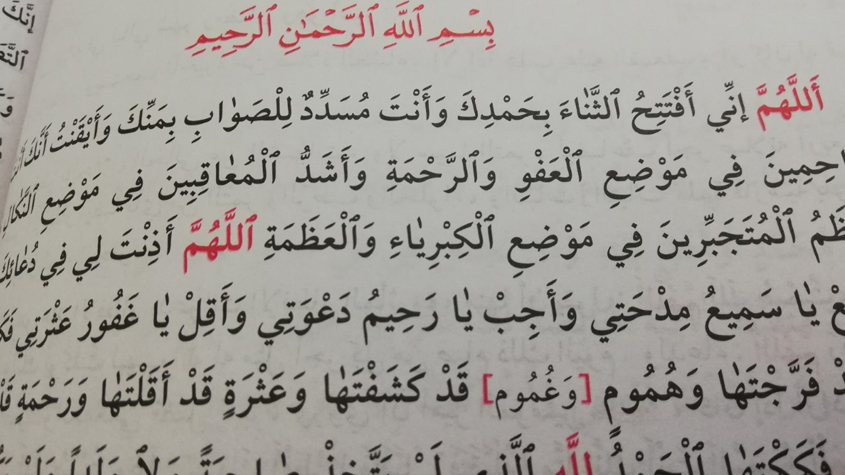 بِسْمِ ٱللَّهِ ٱلرَّحْمَٰنِ ٱلرَّحِيمِ
أَللَّهُمَّ إِنِّي أَفْتَتِحُ ٱلثَّنَاءَ بِحَمْدِكَ وَأَنْتَ مُسَدِّدٌ لِلْصَوٰابِ بِمَنِّكَ وَأَيْقَنْتُ أَنَّكَ
احِمِينَ فِي مَوْضِعِ ٱلْعَفْوِ وَٱلرَّحْمَةِ وَأَشَدُّ ٱلْمُعٰاقِبِينَ فِي مَوْضِعِ ٱلنَّكٰالِ
ظَمُ ٱلْمُتَجَبِّرِينَ فِي مَوْضِعِ ٱلْكِبْرِيٰاءِ وَٱلْعَظَمَةِ ٱللَّهُمَّ أَذِنْتَ لِي فِي دُعٰائِكَ
عْ يٰا سَمِيعُ مِدْحَتِي وَأَجِبْ يٰا رَحِيمُ دَعْوَتِي وَأَقِلْ يٰا غَفُورُ عَثْرَتِي
دْ فَرَّجْتَهٰا وَهُمُومٍ [وَغُمُومٍ] قَدْ كَشَفْتَهٰا وَعَثْرَةٍ قَدْ أَقَلْتَهٰا وَرَحْمَةٍ
فَكَكْتَهٰا ٱلْحَمْدُ لِلَّهِ ٱلَّذِي لَمْ يَتَّخِذْ صٰاحِبَةً وَلاٰ وَلَداً وَلَمْ